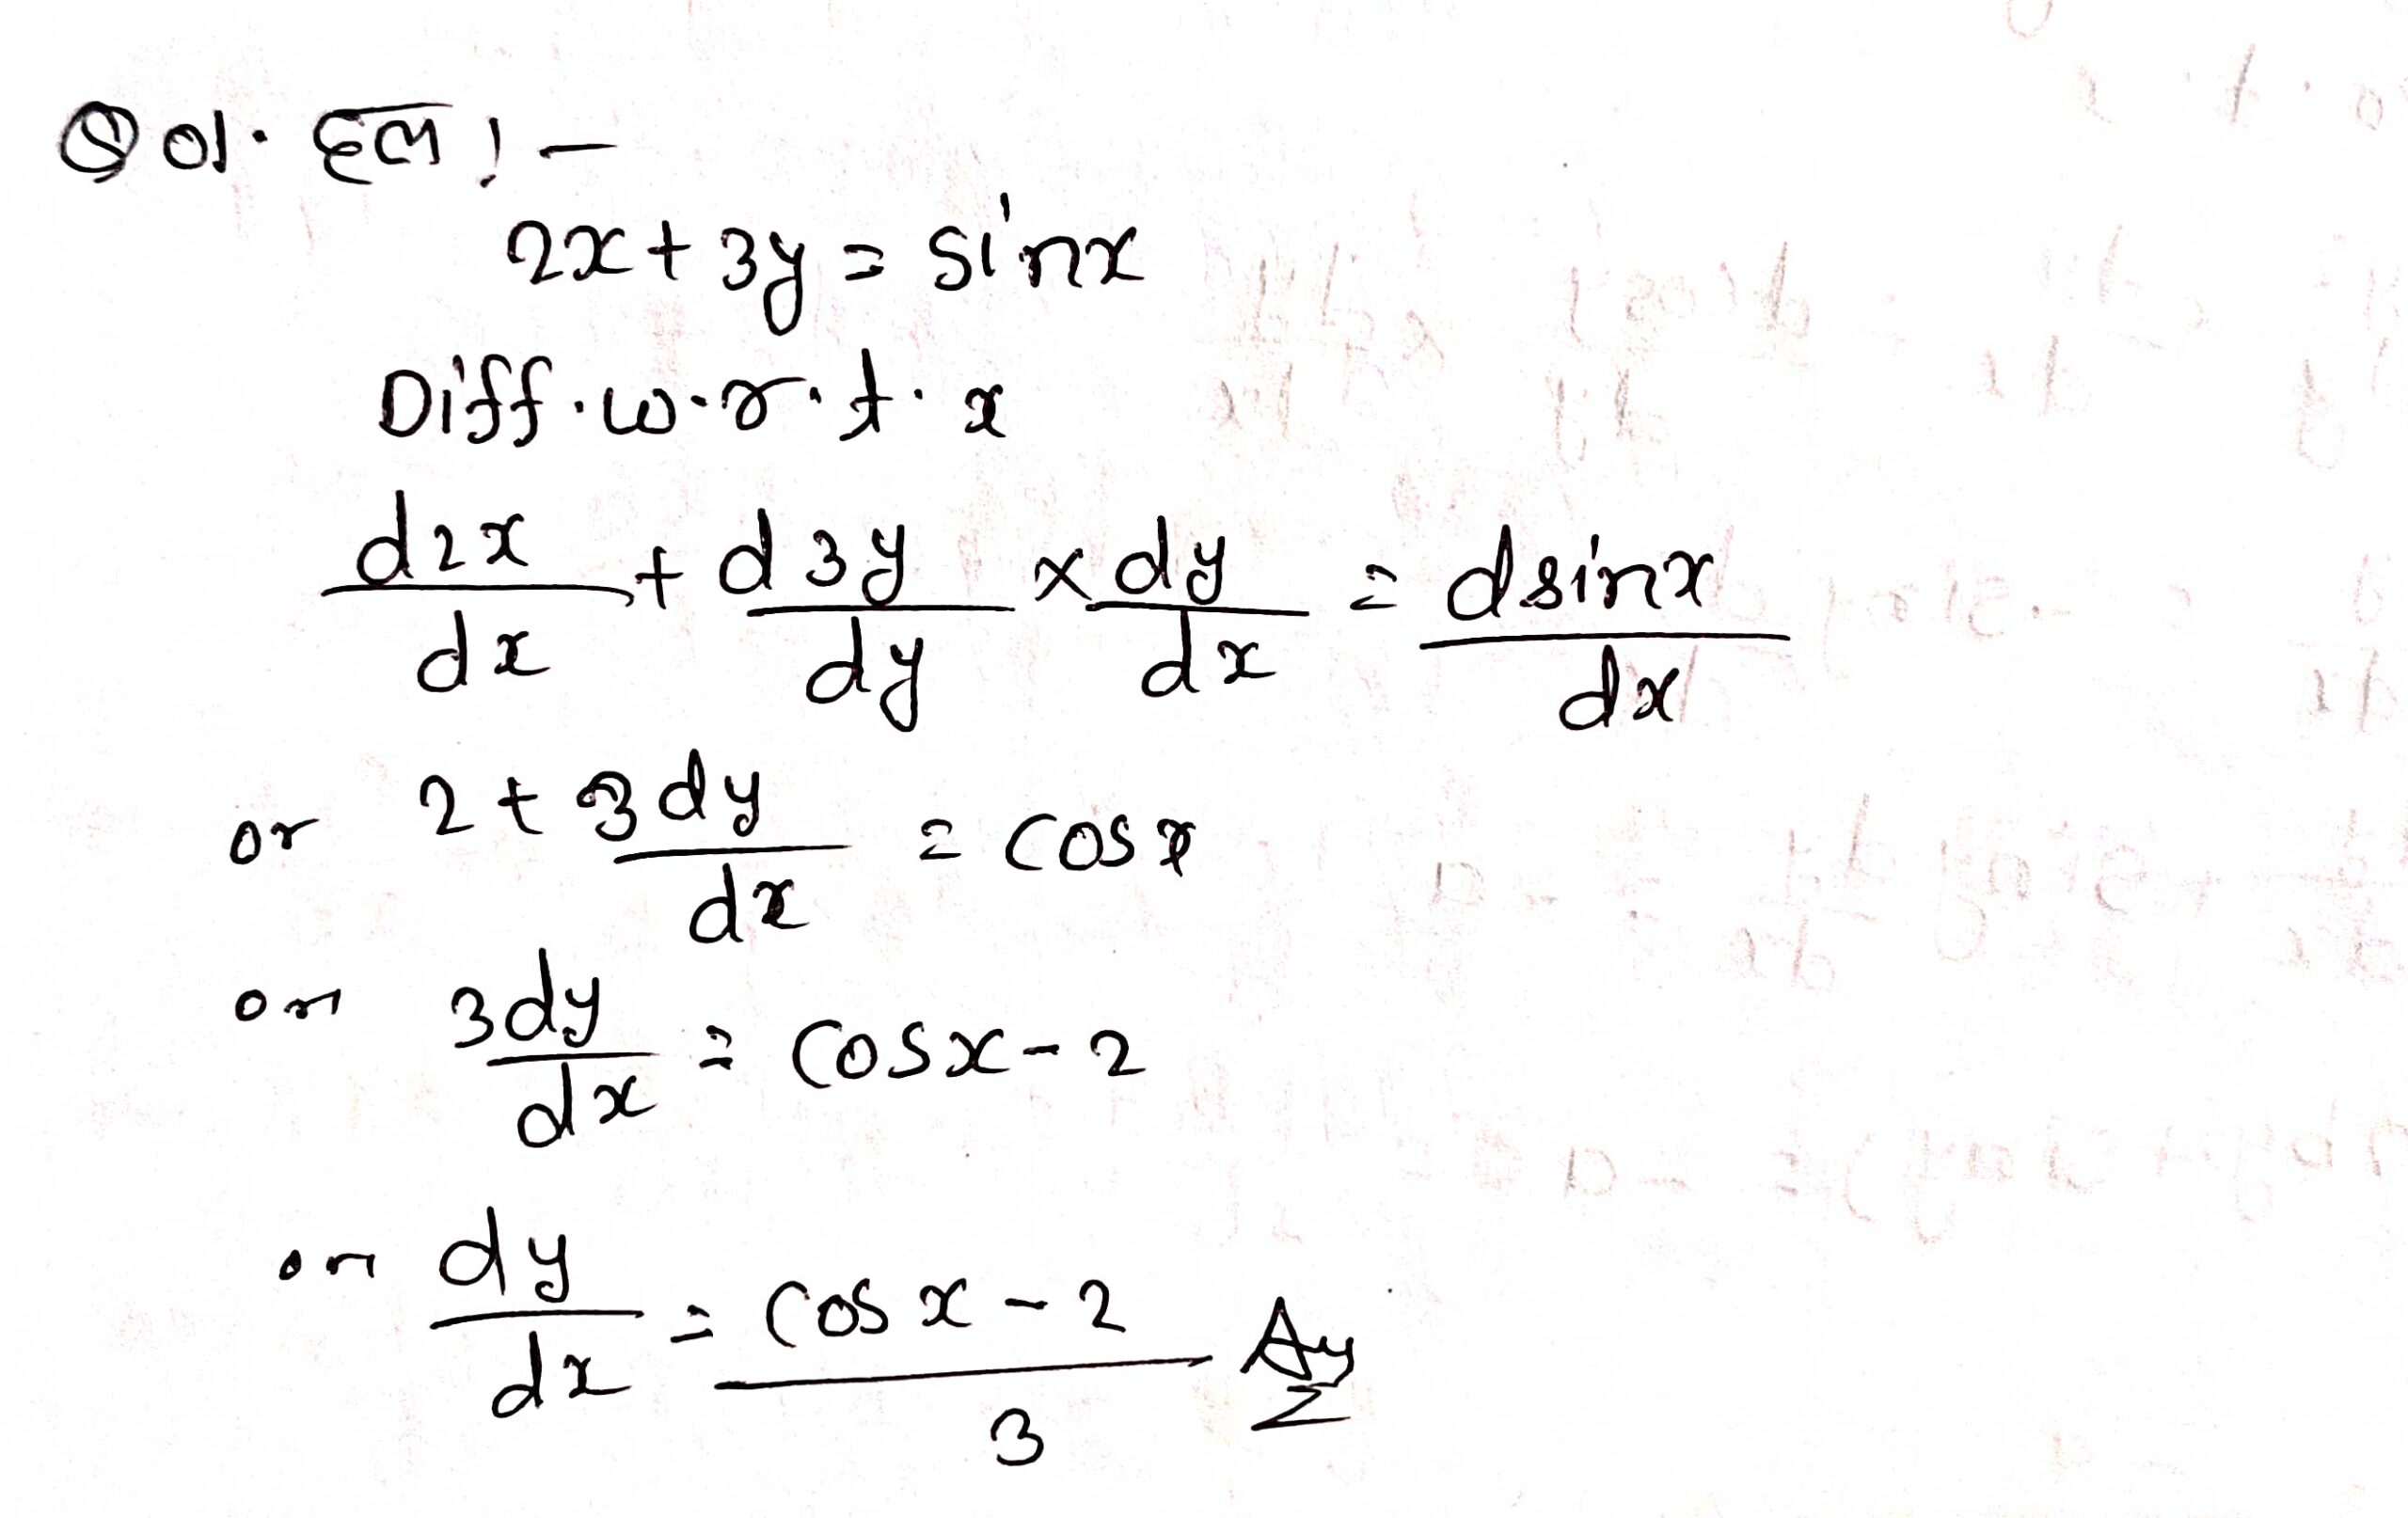 Q 01. हल :-
2x + 3y = sinx
Diff. w.r.t. x
d2x/dx + d3y/dy × dy/dx = dsinx/dx
or 2 + 3dy/dx = cosx
or 3dy/dx = cosx - 2
or dy/dx = cos x - 2/3 Ans